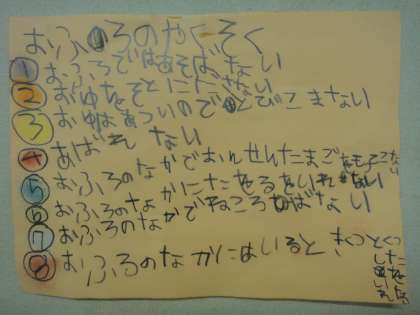 おふろのやくそく
1 おふろではあそばない
2 おゆをそとにださない
3 おゆはあついのでとびこまない
4 あばれない
5 おふろのなかでおんせんたまごをもってこない
6 おふろのなかにたをるをいれない
7 おふろのなかでねころばない
8 おふろのなかにはいるときくつ